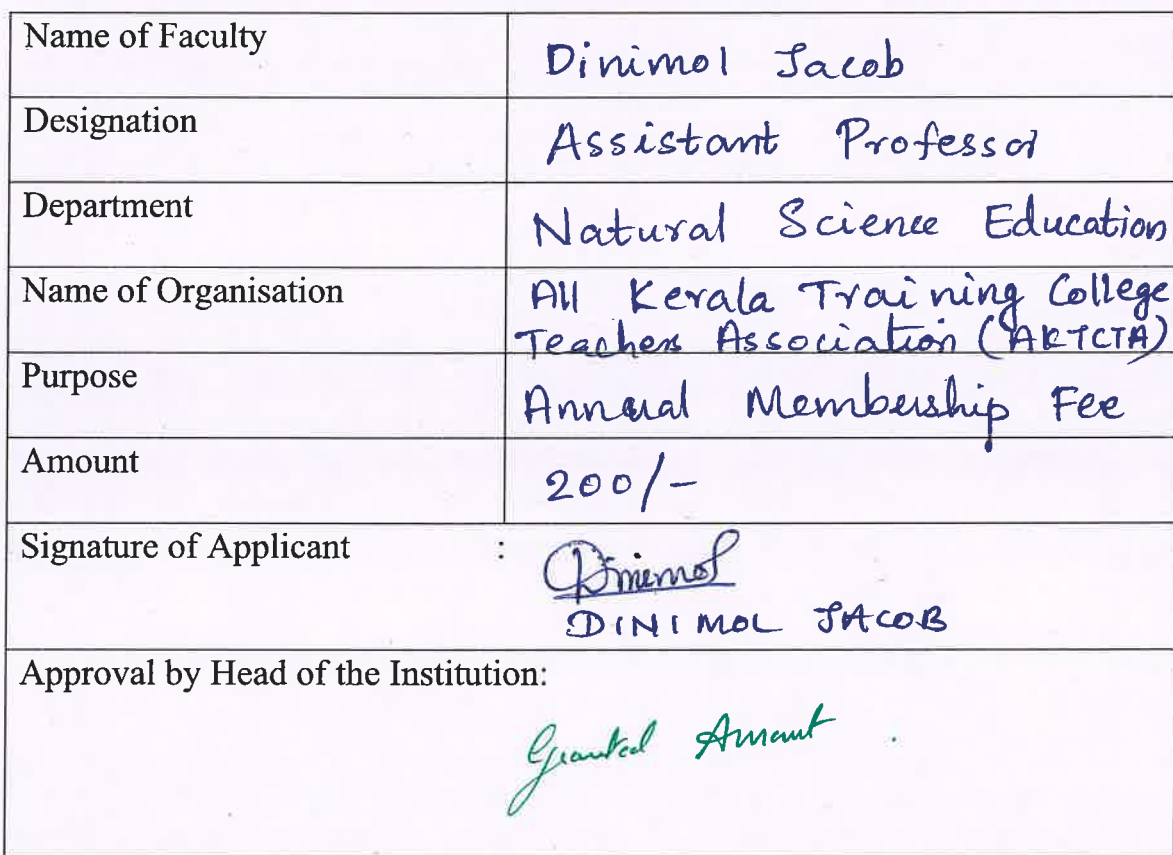 Name of Faculty Dinimol Jacob
Designation Assistant Professor
Department Natural Science Education
Name of Organisation All Kerala Training College
Teachers Association (AKTCTA)
Purpose Annual Membership Fee
Amount 200/-
Signature of Applicant : Dinimol
DINIMOL JACOB
Approval by Head of the Institution:
Granted Amount .